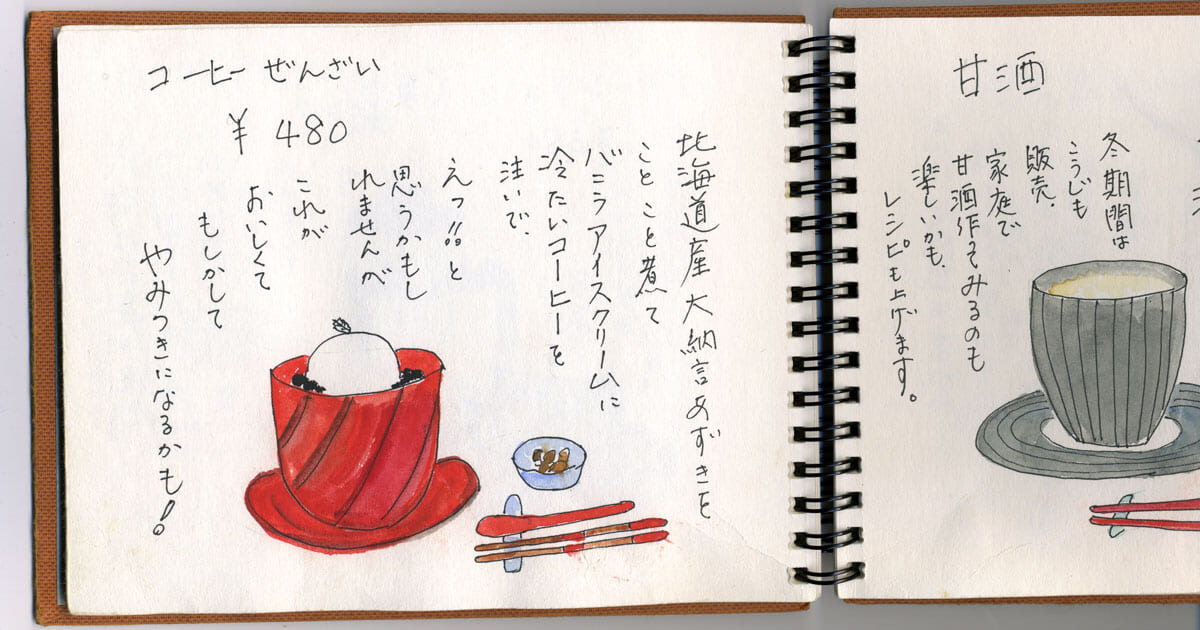 コーヒーぜんざい
¥480
北海道産大納言あずきを
ことこと煮て
バニラアイスクリームに
冷たいコーヒーを
注いで、
えっ!!と
思うかもし
れませんが
これが
おいしくて
もしかして
やみつきになるかも!
甘酒
冬期間は
こうじも
販売、
家庭で
甘酒作ってみるのも
楽しいかも、
レシピも上げます。